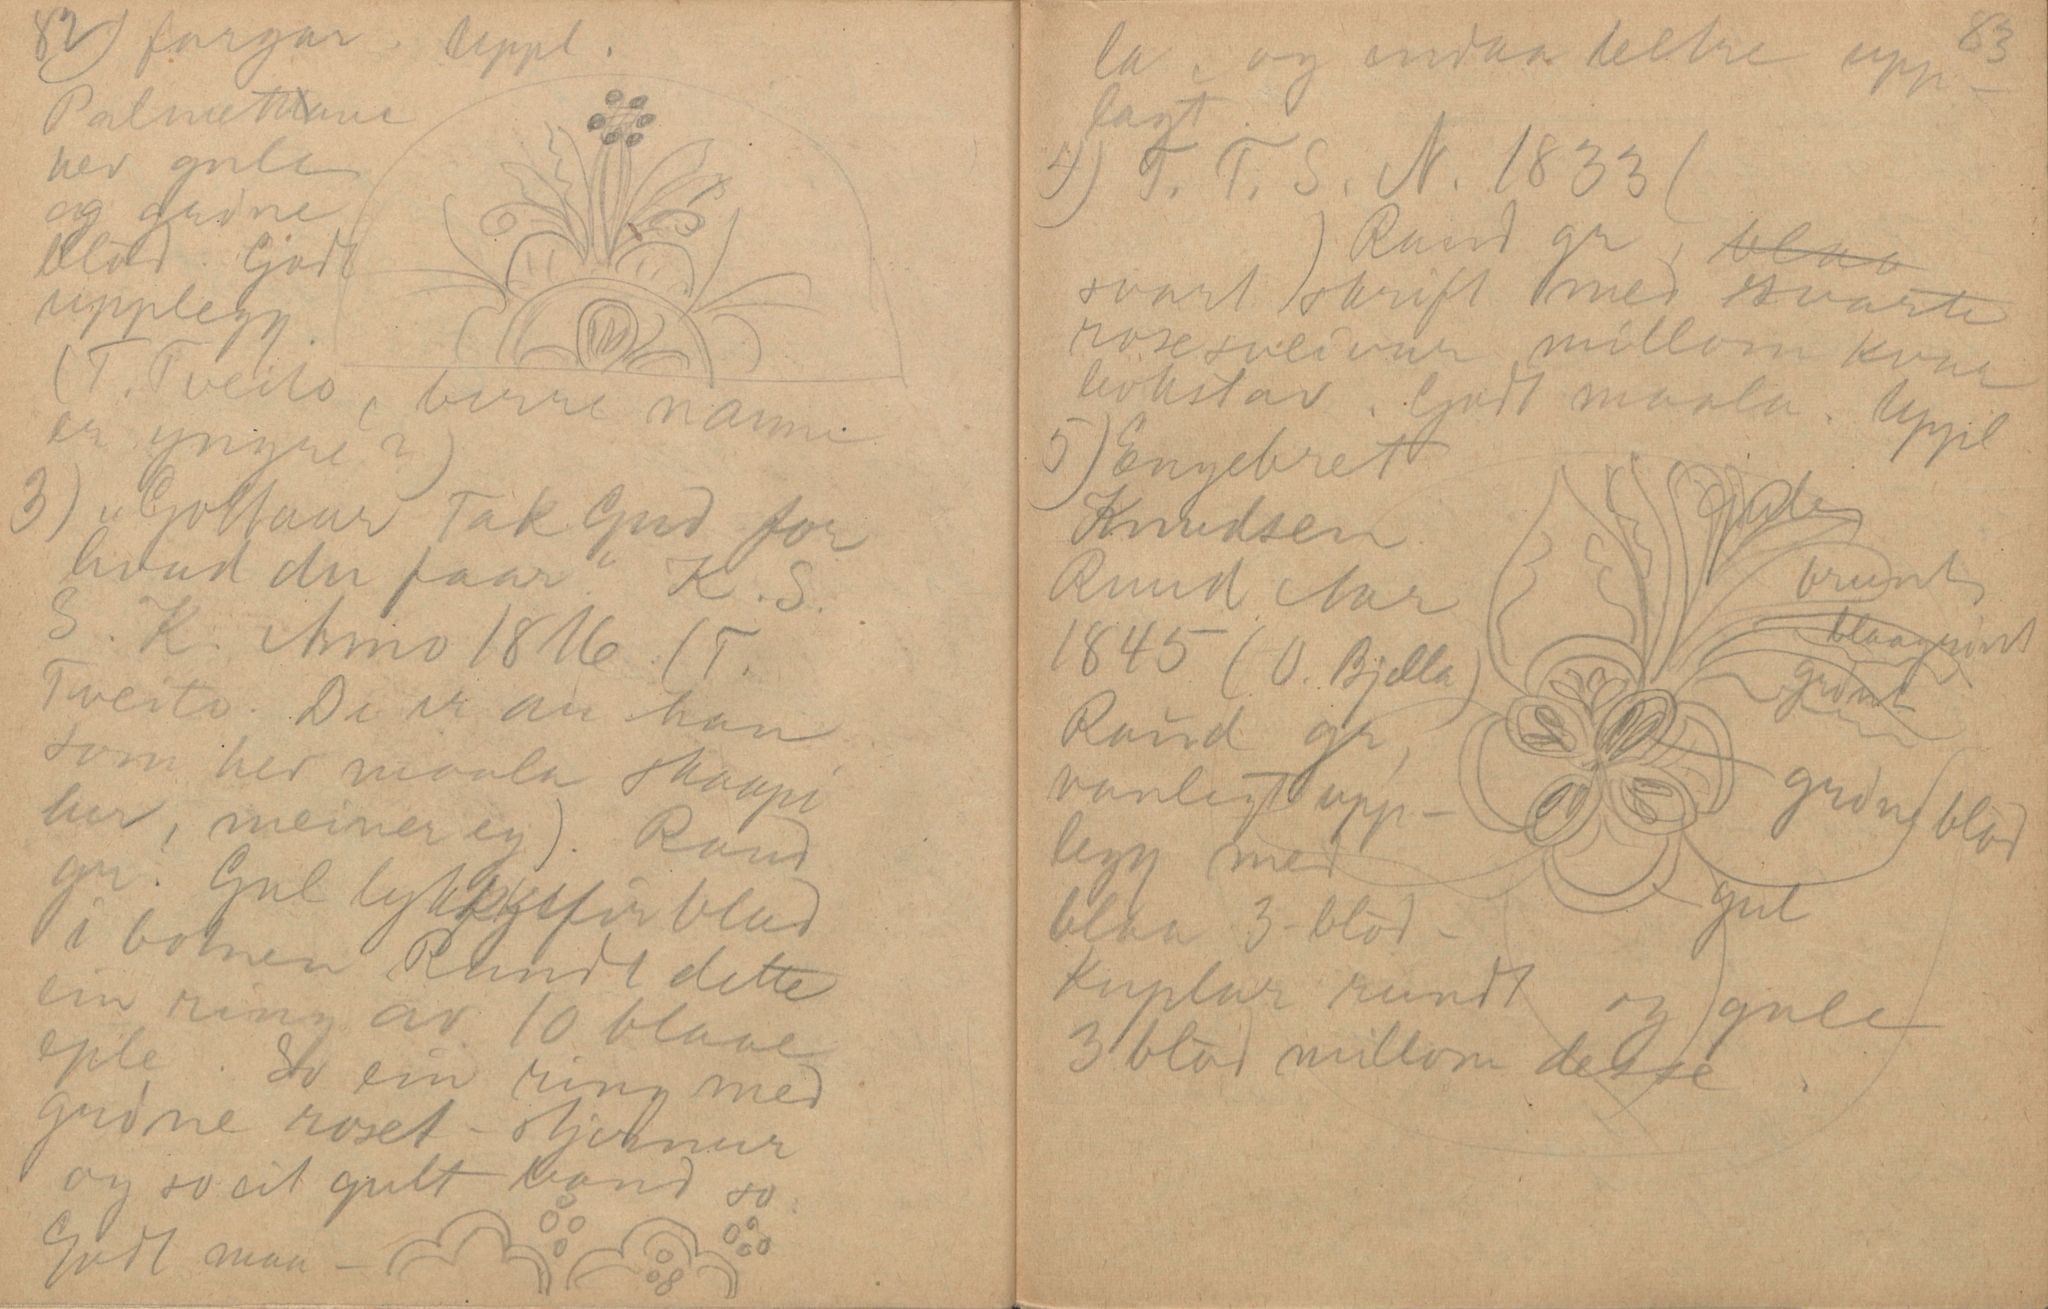 82) fargar. Uppl.
Palmettane
hev gule
og grøne
blød. Godt
upplegg.
(T. Tveito, berre namni
er yngre?)
3) "Goltaar Tak Gud for
hvad du faar" K. S.
S. K. Anno 1816 (T.
Tveito. De er an han
som hev maala skaapi
her, meiner eg). Rand
gr. Gul lykkjeforblad
i botnen Rundt dette
ein ring av 10 blaae
eple. So ein ring med
grøne roset-stjernur
og so eit gult band so
Godt maa-
83
la, og endaa beltre upp-
lagt.
4) T. T. S. N. 1833 (
) Rand gr, blaa
svart skrift med svarte
rosesveivar millom kvar
bokstav. Godt maala. Uppl
5) Engebret
Knudsen
Ruud Aar
1845 (O. Bjella)
Rand gr,
vanlegt upp-
legg med
blaa 3-blød-
kuplar rundt og gule
3 blød millom desse.
gule
brunt
blaagrønt
grønt
grøne blød
gul